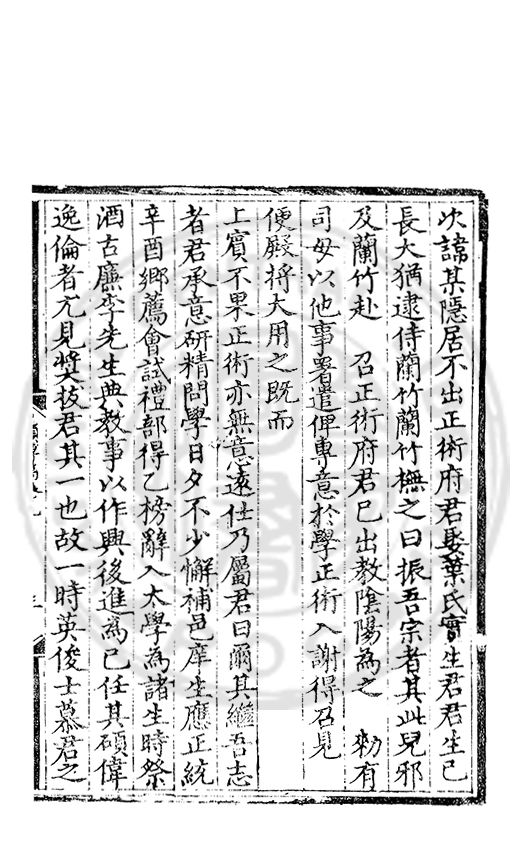 次諱某隱居不出正術府君娶葉氏實生君君生已
長大猶逮侍蘭竹蘭竹撫之曰振吾宗者其此兒邪
及蘭竹赴　召正術府君已出教陰陽為之　勑有
司毋以他事署遣俾專意於學正術入謝得召見
便殿将大用之既而
上賓不果正術亦無意遠仕乃屬君曰爾其繼吾志
者君承意研精問學日夕不少懈補邑庠生應正統
辛酉鄉薦會試禮部得乙榜辭入太學為諸生時祭
酒古廉李先生典教事以作興後進為己任其碩偉
逸倫者尤見獎拔君其一也故一時英俊士慕君之